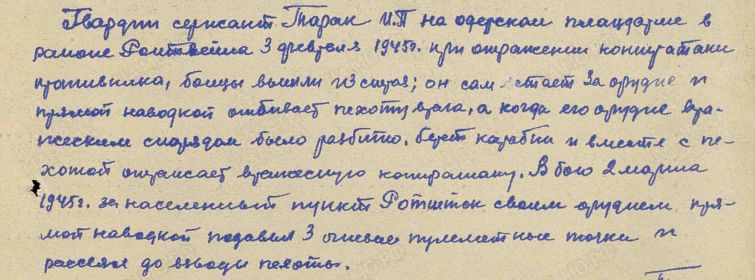 Гвардии сержант Таран И.П на одерском плацдарме в
районе Ратштейна 3 февраля 1945г. при отражении контратаки
противника, бойцы вышли из строя; он сам встает за орудие и
прямой наводкой отбивает пехоту врага, а когда его орудие вра-
жеским снарядом было разбито. берет карабин и вместе с пе-
хотой отражает вражескую контратаку. В бою 2 марта
1945г. за населенный пункт Ротшток своим орудием пря-
мой наводкой подавил 3 огневые пулеметные точки и
рассеял до взвода пехоты.